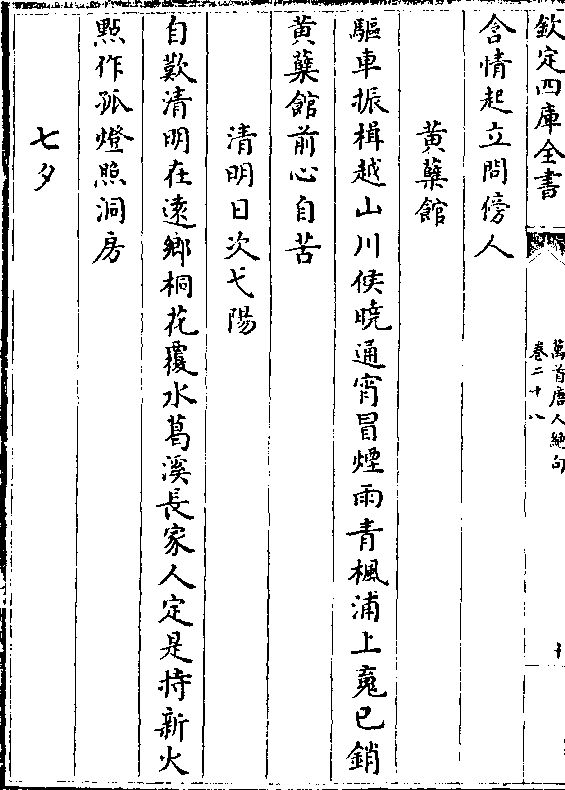 欽定四庫全書
萬首唐人絶句
卷二十八
十
含情起立問傍人
黄蘖館
驅車振楫越山川候曉通宵冒煙雨青楓浦上魂已銷
黄蘖館前心自苦
清明日次弋陽
自歎清明在遠鄉桐花覆水葛溪長家人定是持新火
㸃作孤燈照洞房
七夕